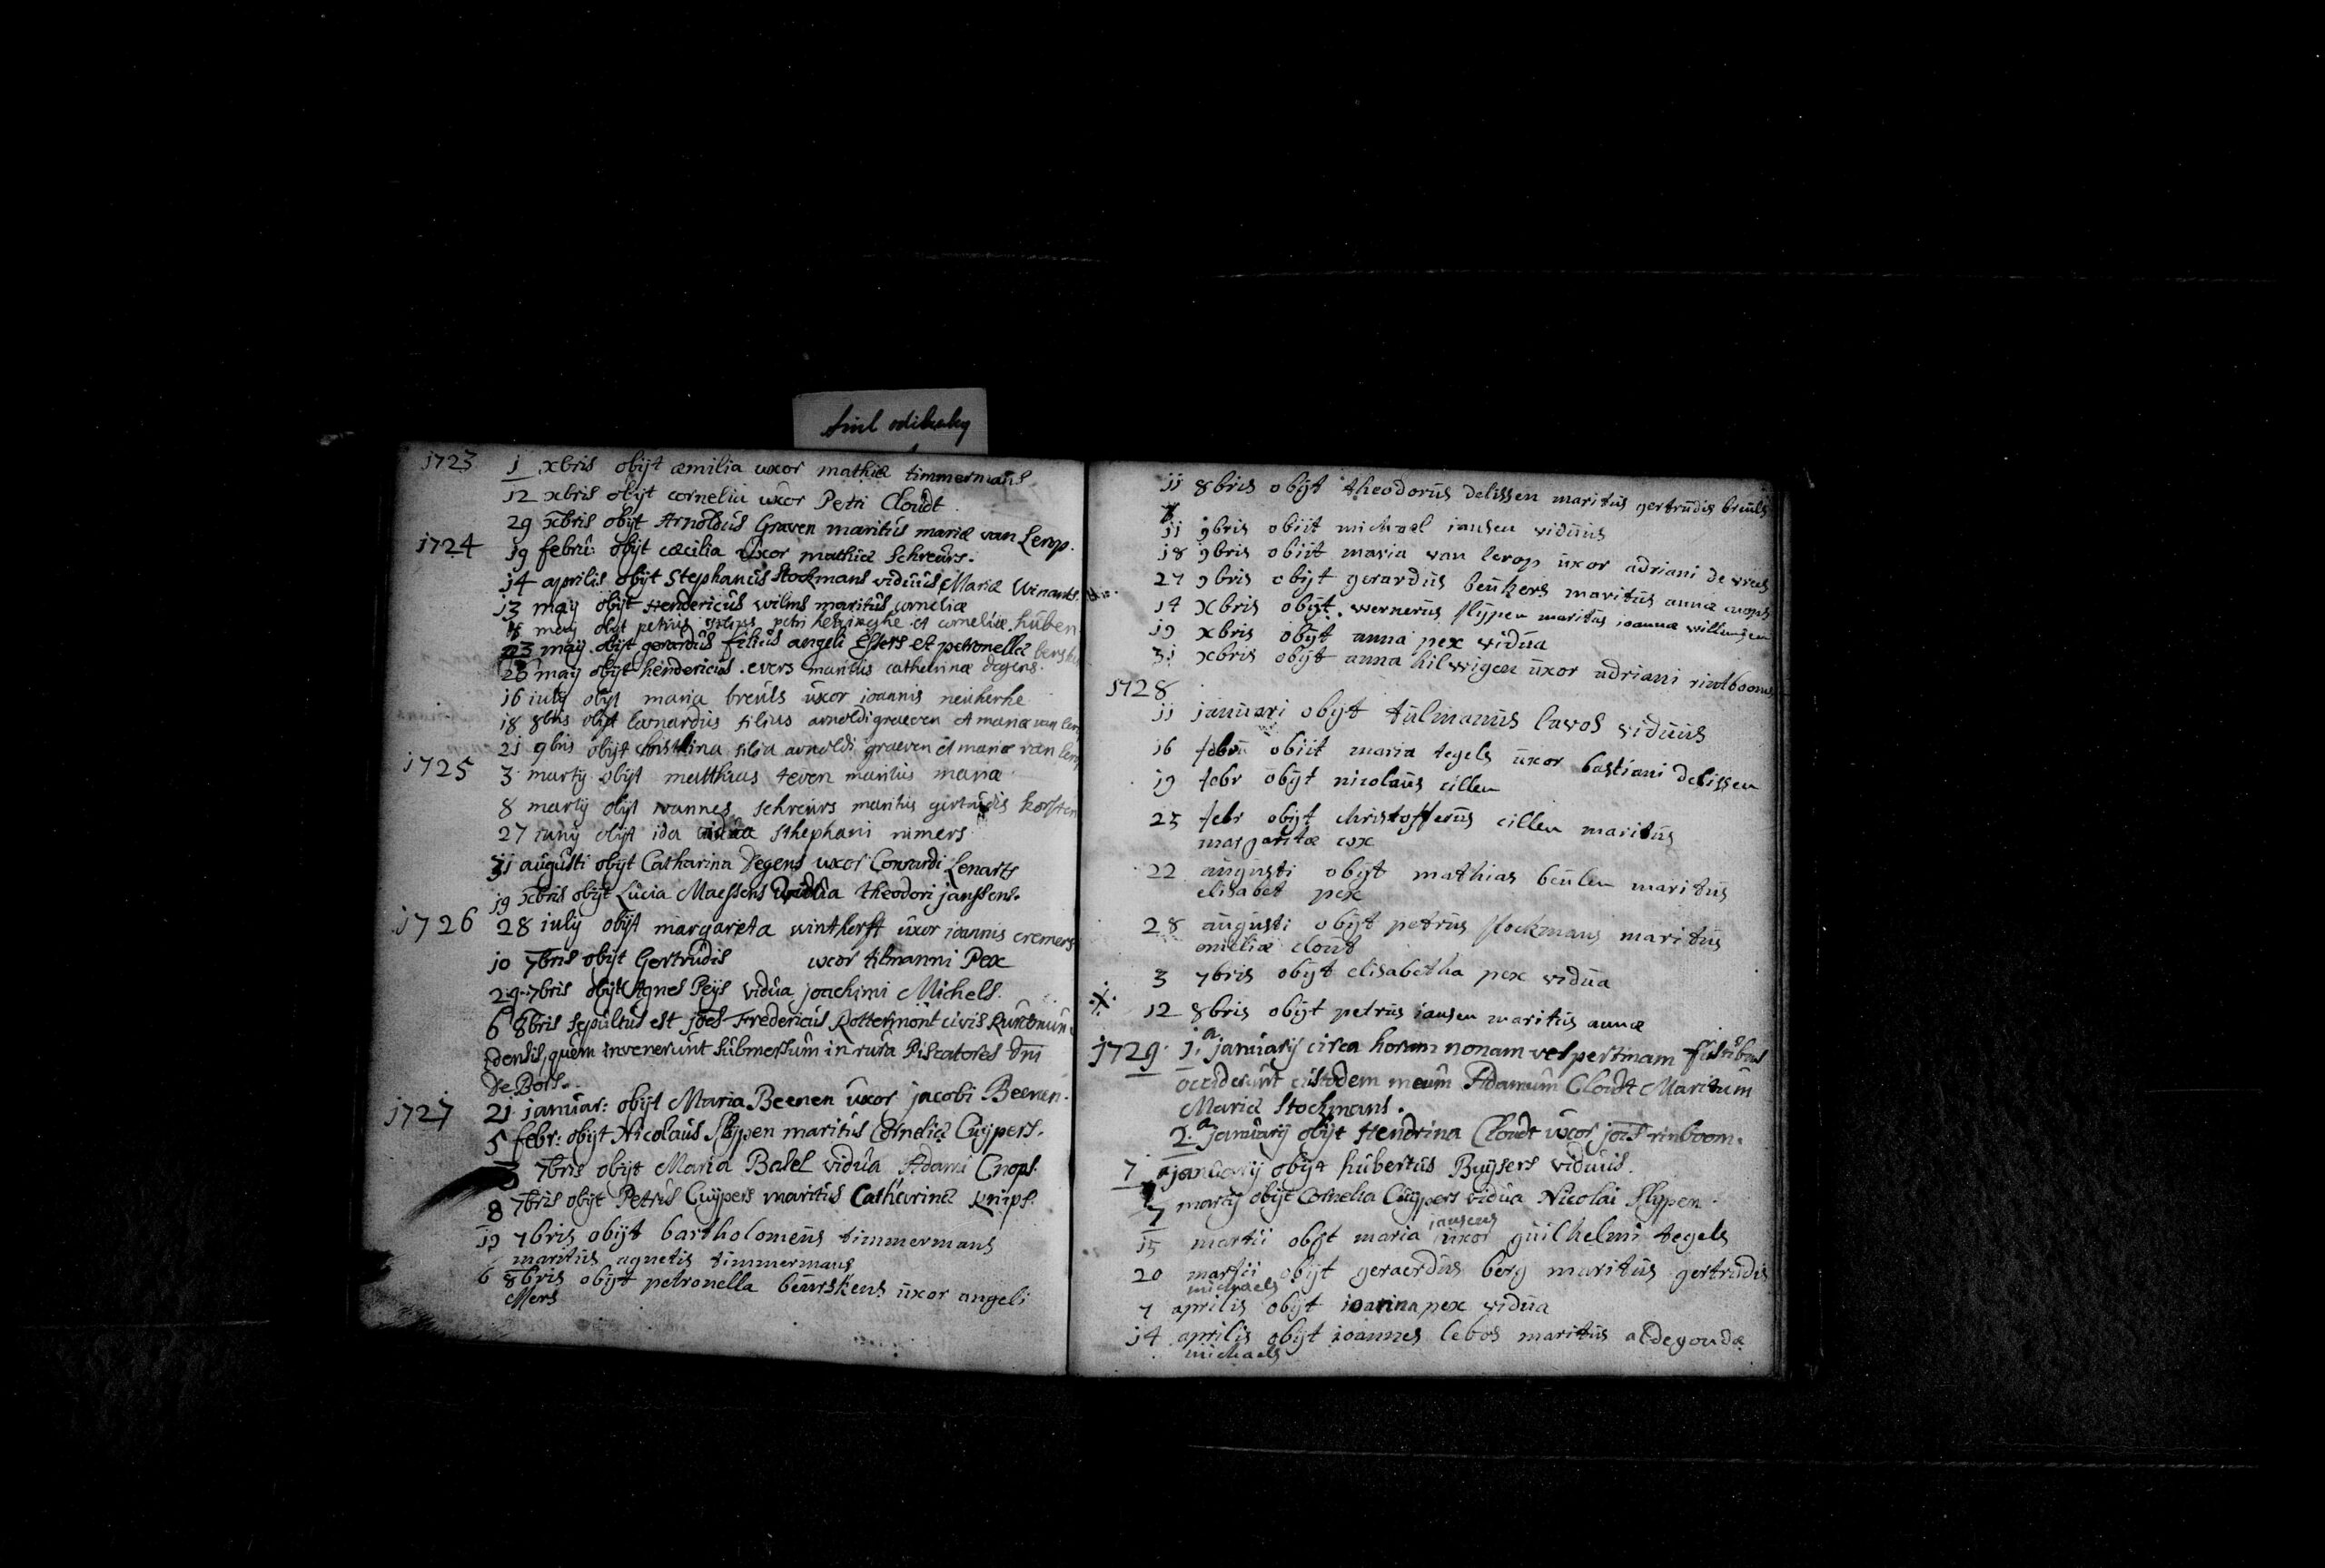 1723 1 xbris obijt æmilia uxor mathiæ timmermans
12 xbris obijt cornelia uxor Petri Cloudt.
29 xbris obijt Arnoldus Graven maritus mariæ van Lerop.
1724 19 febru: obijt cæcilia uxor mathiæ Schreurs.
14 aprilis obijt Stephanus Stockmans viduus Mariæ Winants.
13 may obijt Hendericus wilms maritus corneliæ
18 may obijt petrus petri et corneliæ huben
23 may obijt gerardus filius angeli Essers et petronellæ
28 may obijt hendericus evers maritus catharinæ degens.
16 iuly obijt maria breuls uxor ioannis neukerke
18 8bris obijt leonardus filius arnoldi graeven et mariæ van
21 9bris obijt christina filia arnoldi graeven et mariæ van
1725 3 martij obijt matthias teven maritus maria
8 martij obijt ioannes schreurs maritus gertrudis
27 iunij obijt ida vidua sthephani rumers
31 augusti obijt Catharina Degens uxor Conrardi Lenarts
19 xbris obijt Lucia Maessens vidua theodori janssens.
1726 28 iuly obijt margareta uxor ioannis cremers
10 7bris obijt Gertrudis uxor tilmanni Pex
29 7bris obijt Agnes Peijs vidua joachimi Michels.
6 8bris sepultus est joes Fredericus Rottermont civis
densis, quem invenerunt submersum in rura Piscatores dni
De Bors.
1727 21 januar: obijt Maria Beenen uxor jacobi Beenen.
5 febr: obijt Nicolaus Slijpen maritus Corneliæ Cuijpers.
3 7bris obijt Maria Basel vidua Adami Cnops.
8 7bris obijt Petrus Cuijpers maritus Catharinæ Knips.
19 7bris obijt bartholomeus timmermans
maritus agnetis timmermans
6 8bris obijt petronella beurskens uxor angeli
11 8bris obijt theodorus delissen maritus gertrudis breuls
11 9bris obiit michael iansen viduus
18 9bris obiit maria van lerop uxor adriani de vrees
27 9bris obijt gerardus beukers maritus annæ cnops
14 xbris obijt wernerus slijpen maritus ioannæ willemsen
19 xbris obijt anna pex vidua
31 xbris obijt anna hilwigen uxor adriani rintboom
1728
11 januari obijt tulmanus lavos viduus
16 febru obiit maria tegels uxor bastiani delissen
19 febr obijt nicolaus cillen
25 febr obijt christofferus cillen maritus
margaritæ cox
22 augusti obijt mathias beulen maritus
elisabet pex
28 augusti obijt petrus stockmans maritus
cloudt
3 7bris obijt elisabetha pex vidua
12 8bris obijt petrus iansen maritus annæ
1729 1.a januarij circa horam nonam vespertinam fustibus
occiderunt custodem meum Adamum Cloudt Maritum
Mariæ Stockmans.
2.a januarij obijt Hendrina Cloudt uxor joes rinboom.
7 januarij obijt hubertus Buijsers viduus.
7 martij obijt Cornelia Cuijpers vidua Nicolai Slijpen
iansens
15 martii obijt maria uxor guilhelmi tegels
20 martii obijt geraerdus berg maritus gertrudis
michaels
7 aprilis obijt ioanna pex vidua
14 aprilis obijt ioannes lebos maritus aldegondæ
michaels